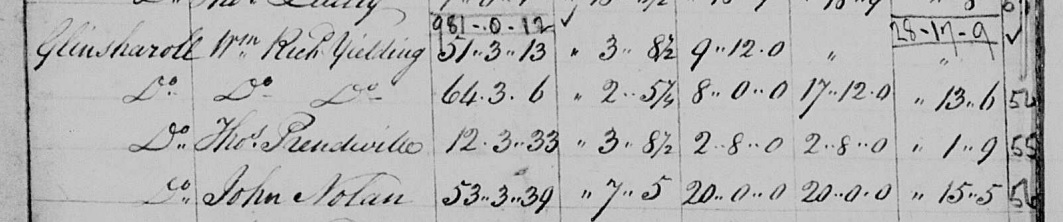 981-0-12 ✓ 28-17-9
Glinsharoll Wm Richd Yielding 51..3..13 " 3.. 8½ 9..12..0 " " ✓
Do Do Do 64.3.6 " 2..5¼ 8..0..0 17..12..0 " 13..6 54
Do Thos Prendiville 12.3..33 " 3..8½ 2..8..0 2..8..0 " 1..9 55
Do John Nolan 53..3..39 " 7..5 20..0..0 20..0..0 " 15..5 56